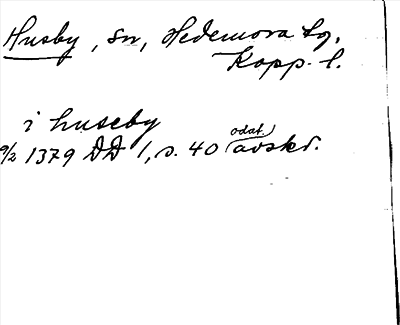 Husby, sn, Hedemora tg,
Kopp. l.
i huseby
9/2 1379 DD 1, s. 40 odat. avskr.